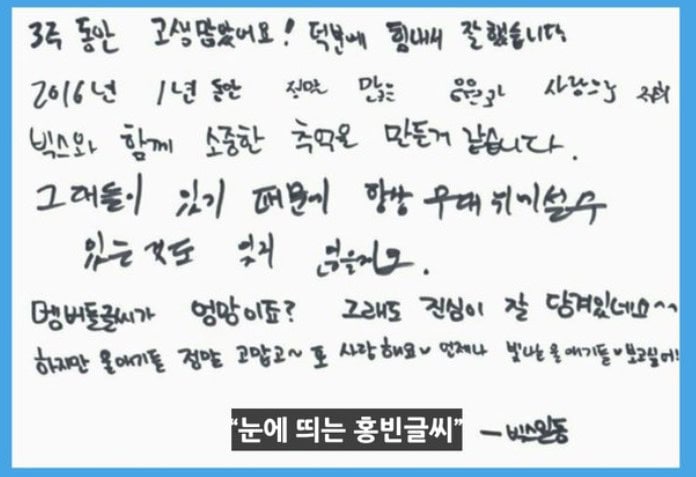 3주 동안 고생많았어요! 덕분에 힘내서 잘했습니다
2016년 1년 동안 정말 많은 응원과 사랑으로 저희
빅스와 함께 소중한 추억을 만든거 같습니다.
그대들이 있기 때문에 항상 무대 위에 설 수
있는 것도 잊지 않을게요.
멤버들글씨가 엉망이죠? 그래도 진심이 잘 담겨있네요~~
하지만 울애기들 정말 고맙고~ 또 사랑해요♥ 언제나 빛나는 울애기들♥보고싶어!
"눈에 띄는 홍빈글씨"
—빅스일동